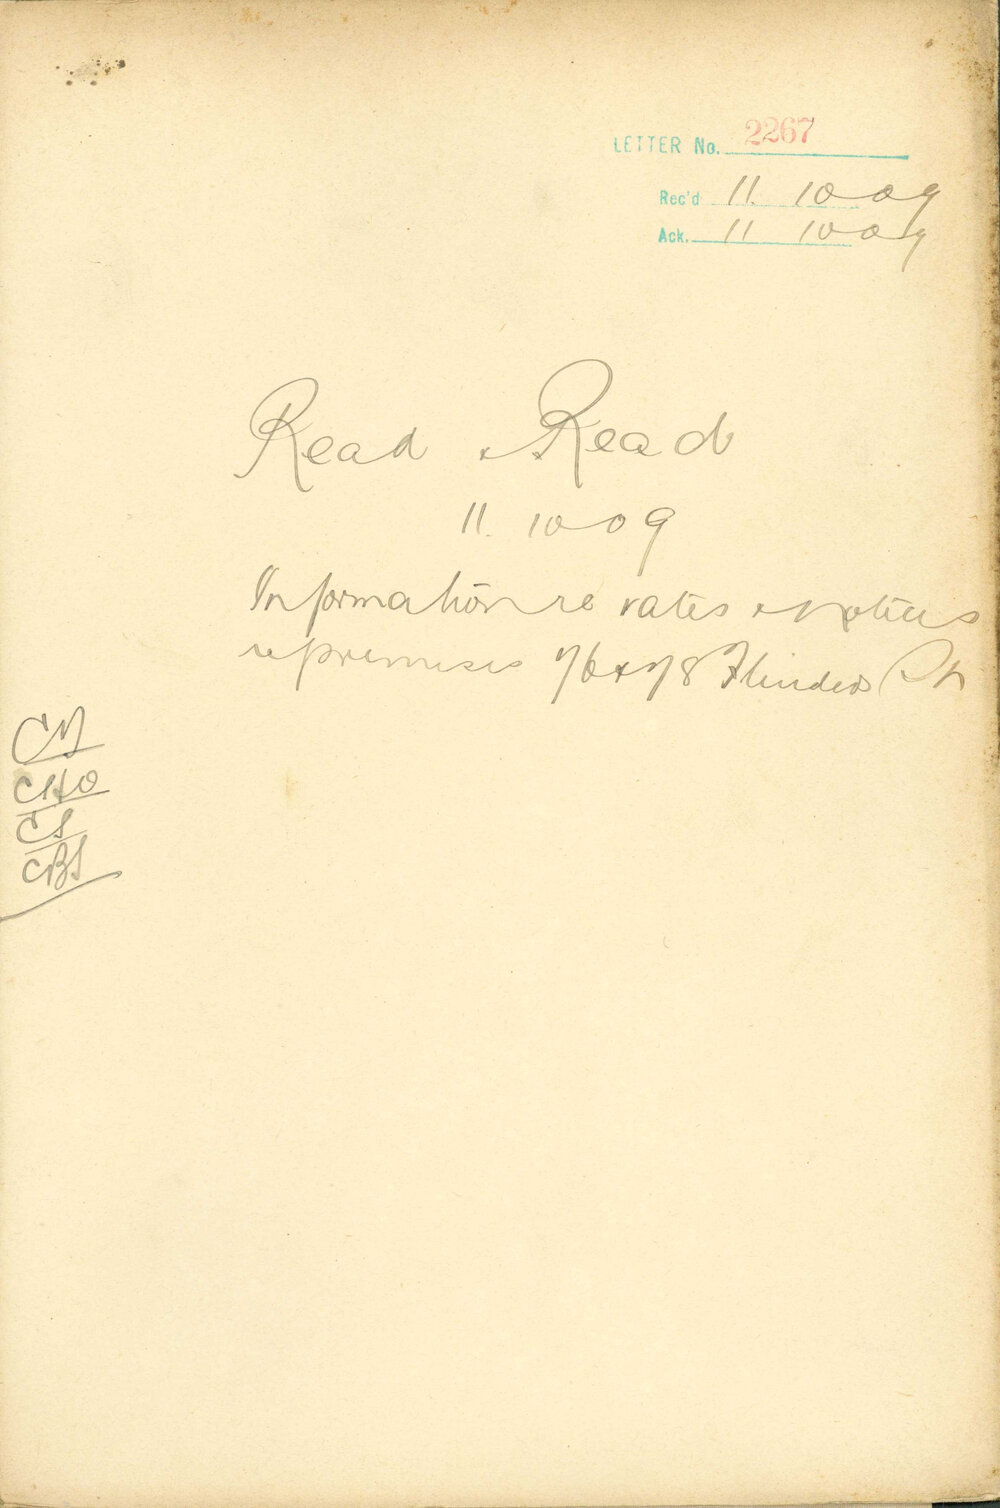 LETTER No. 2267
Rec'd 11. 10 09
Ack. 11 10 09
Read & Read
11. 10 09
Information re rates & notices
re premises 76 & 78 Flinders St
CHO
CS
CBS